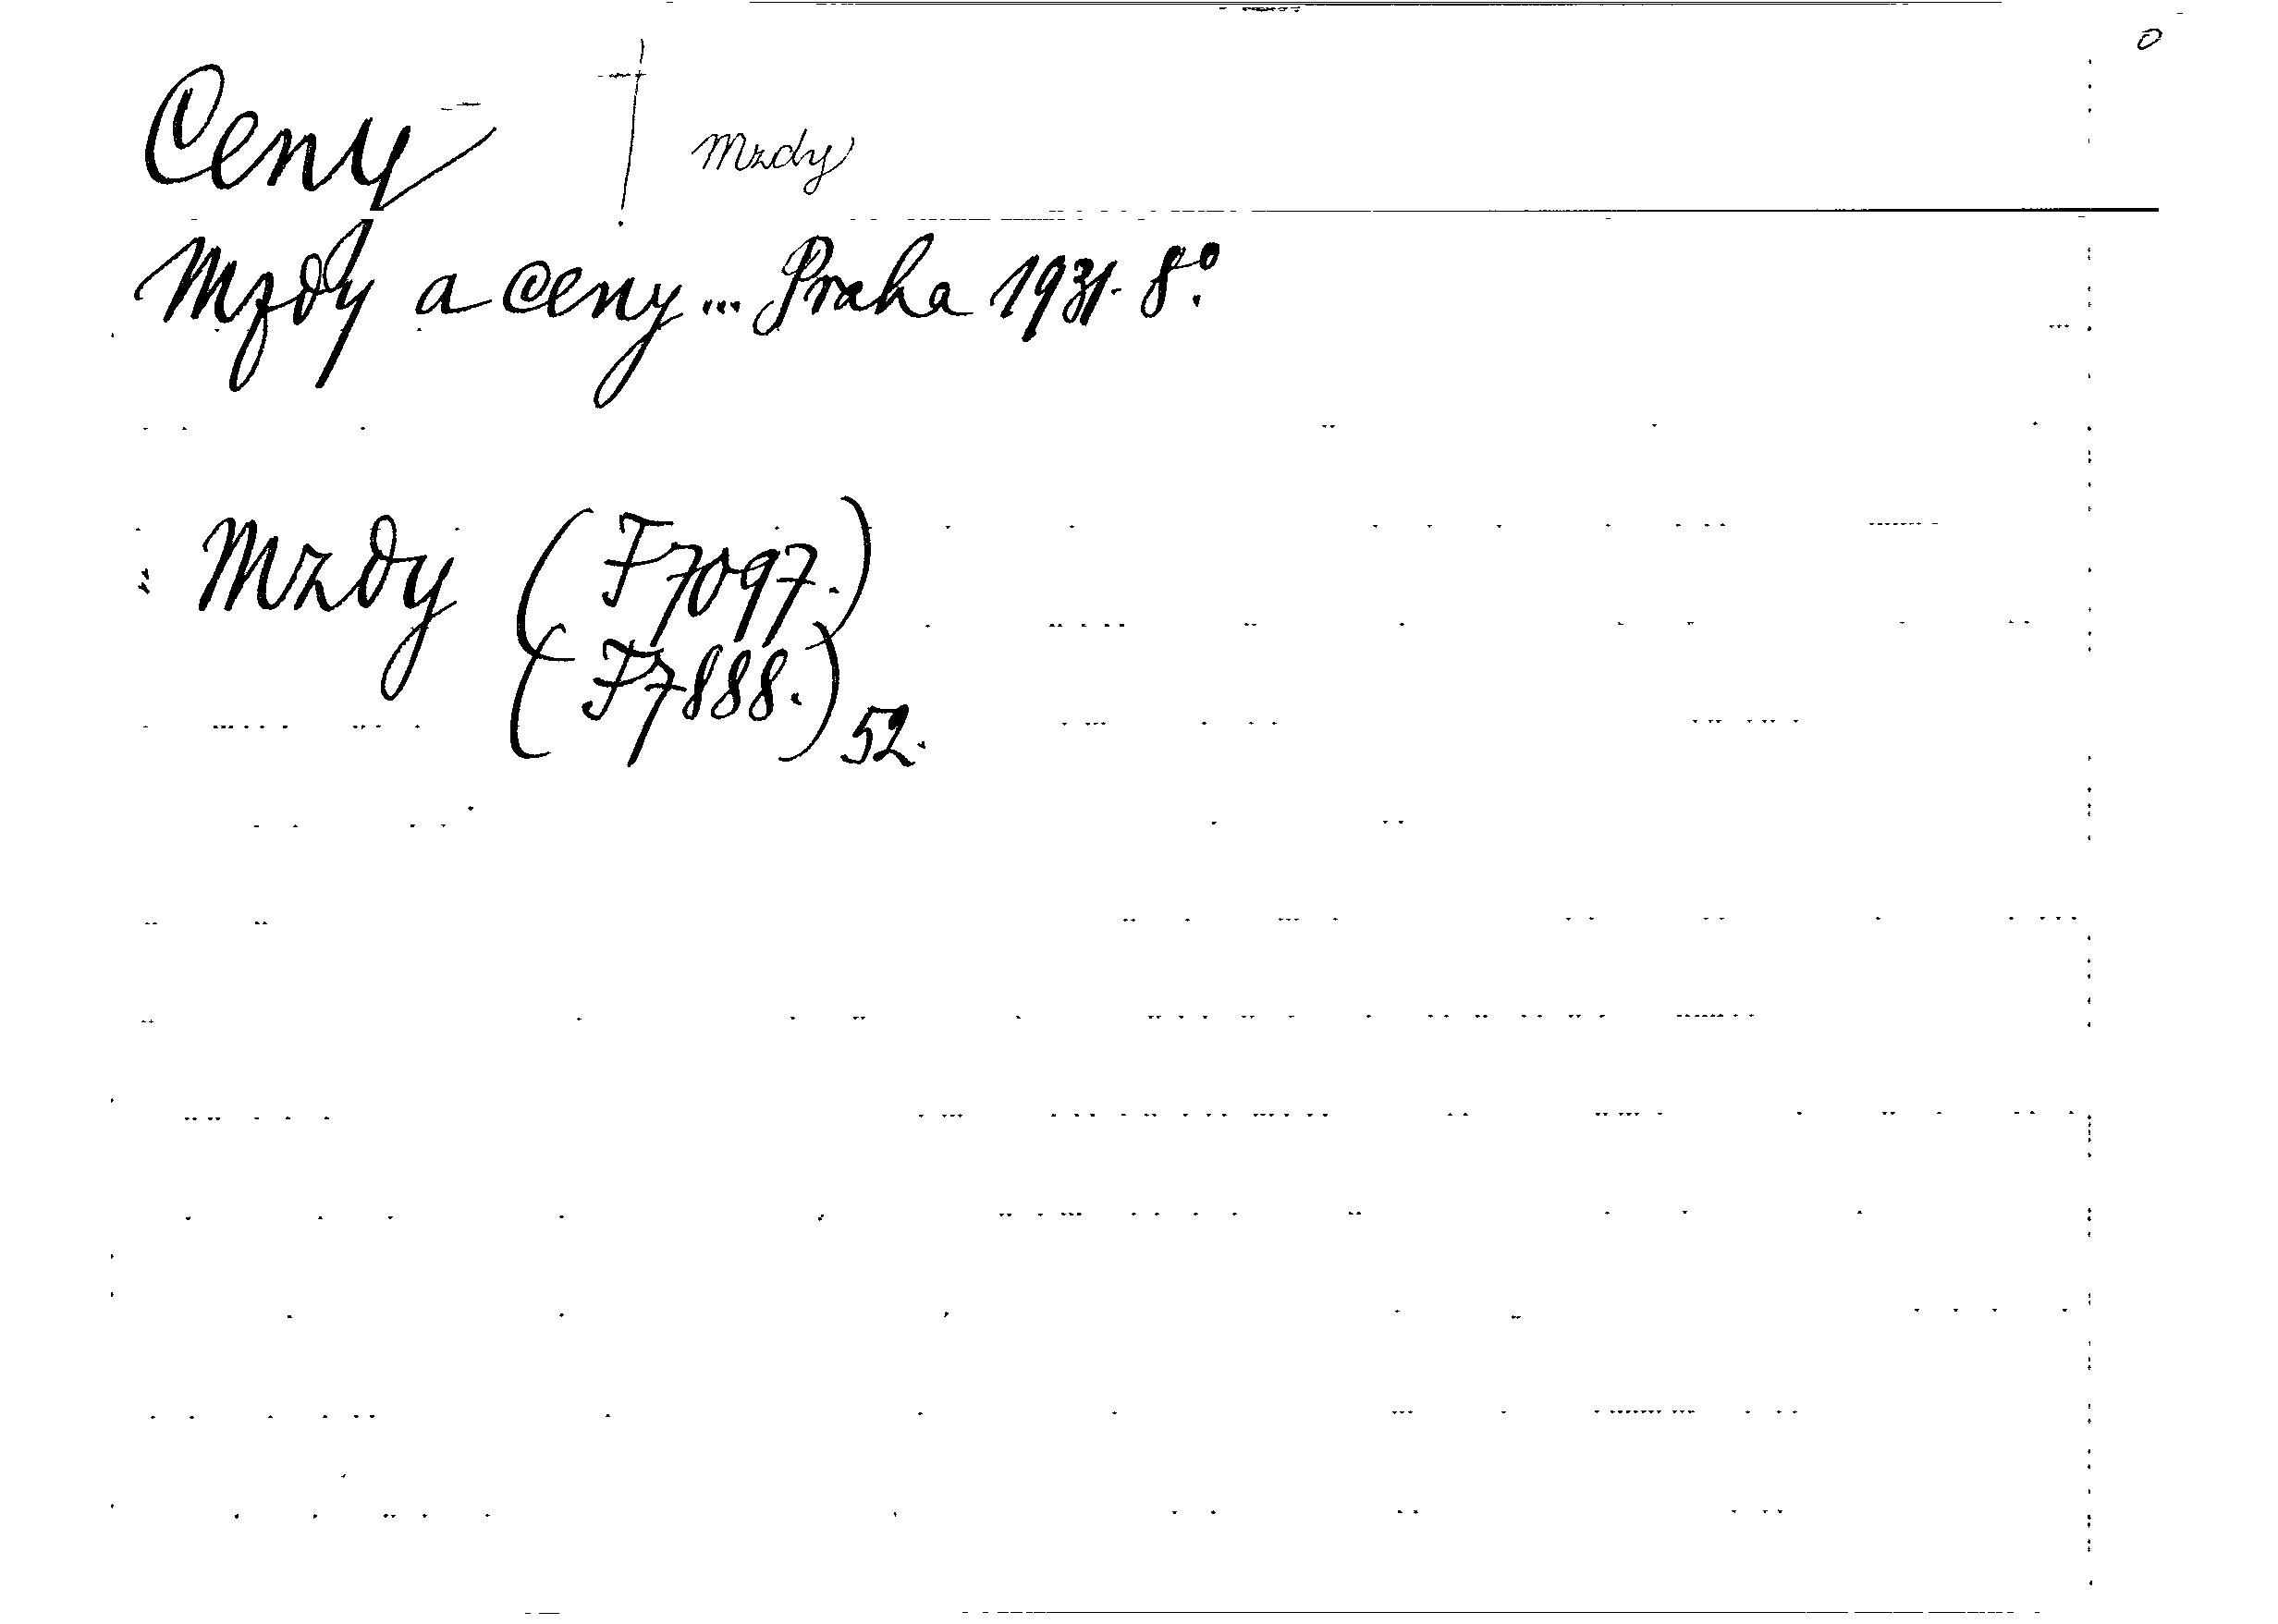 Ceny Mzdy
Mzdy a ceny... Praha 1931. 8º.
: Mzdy (F7097.)
(F7888.) 52.